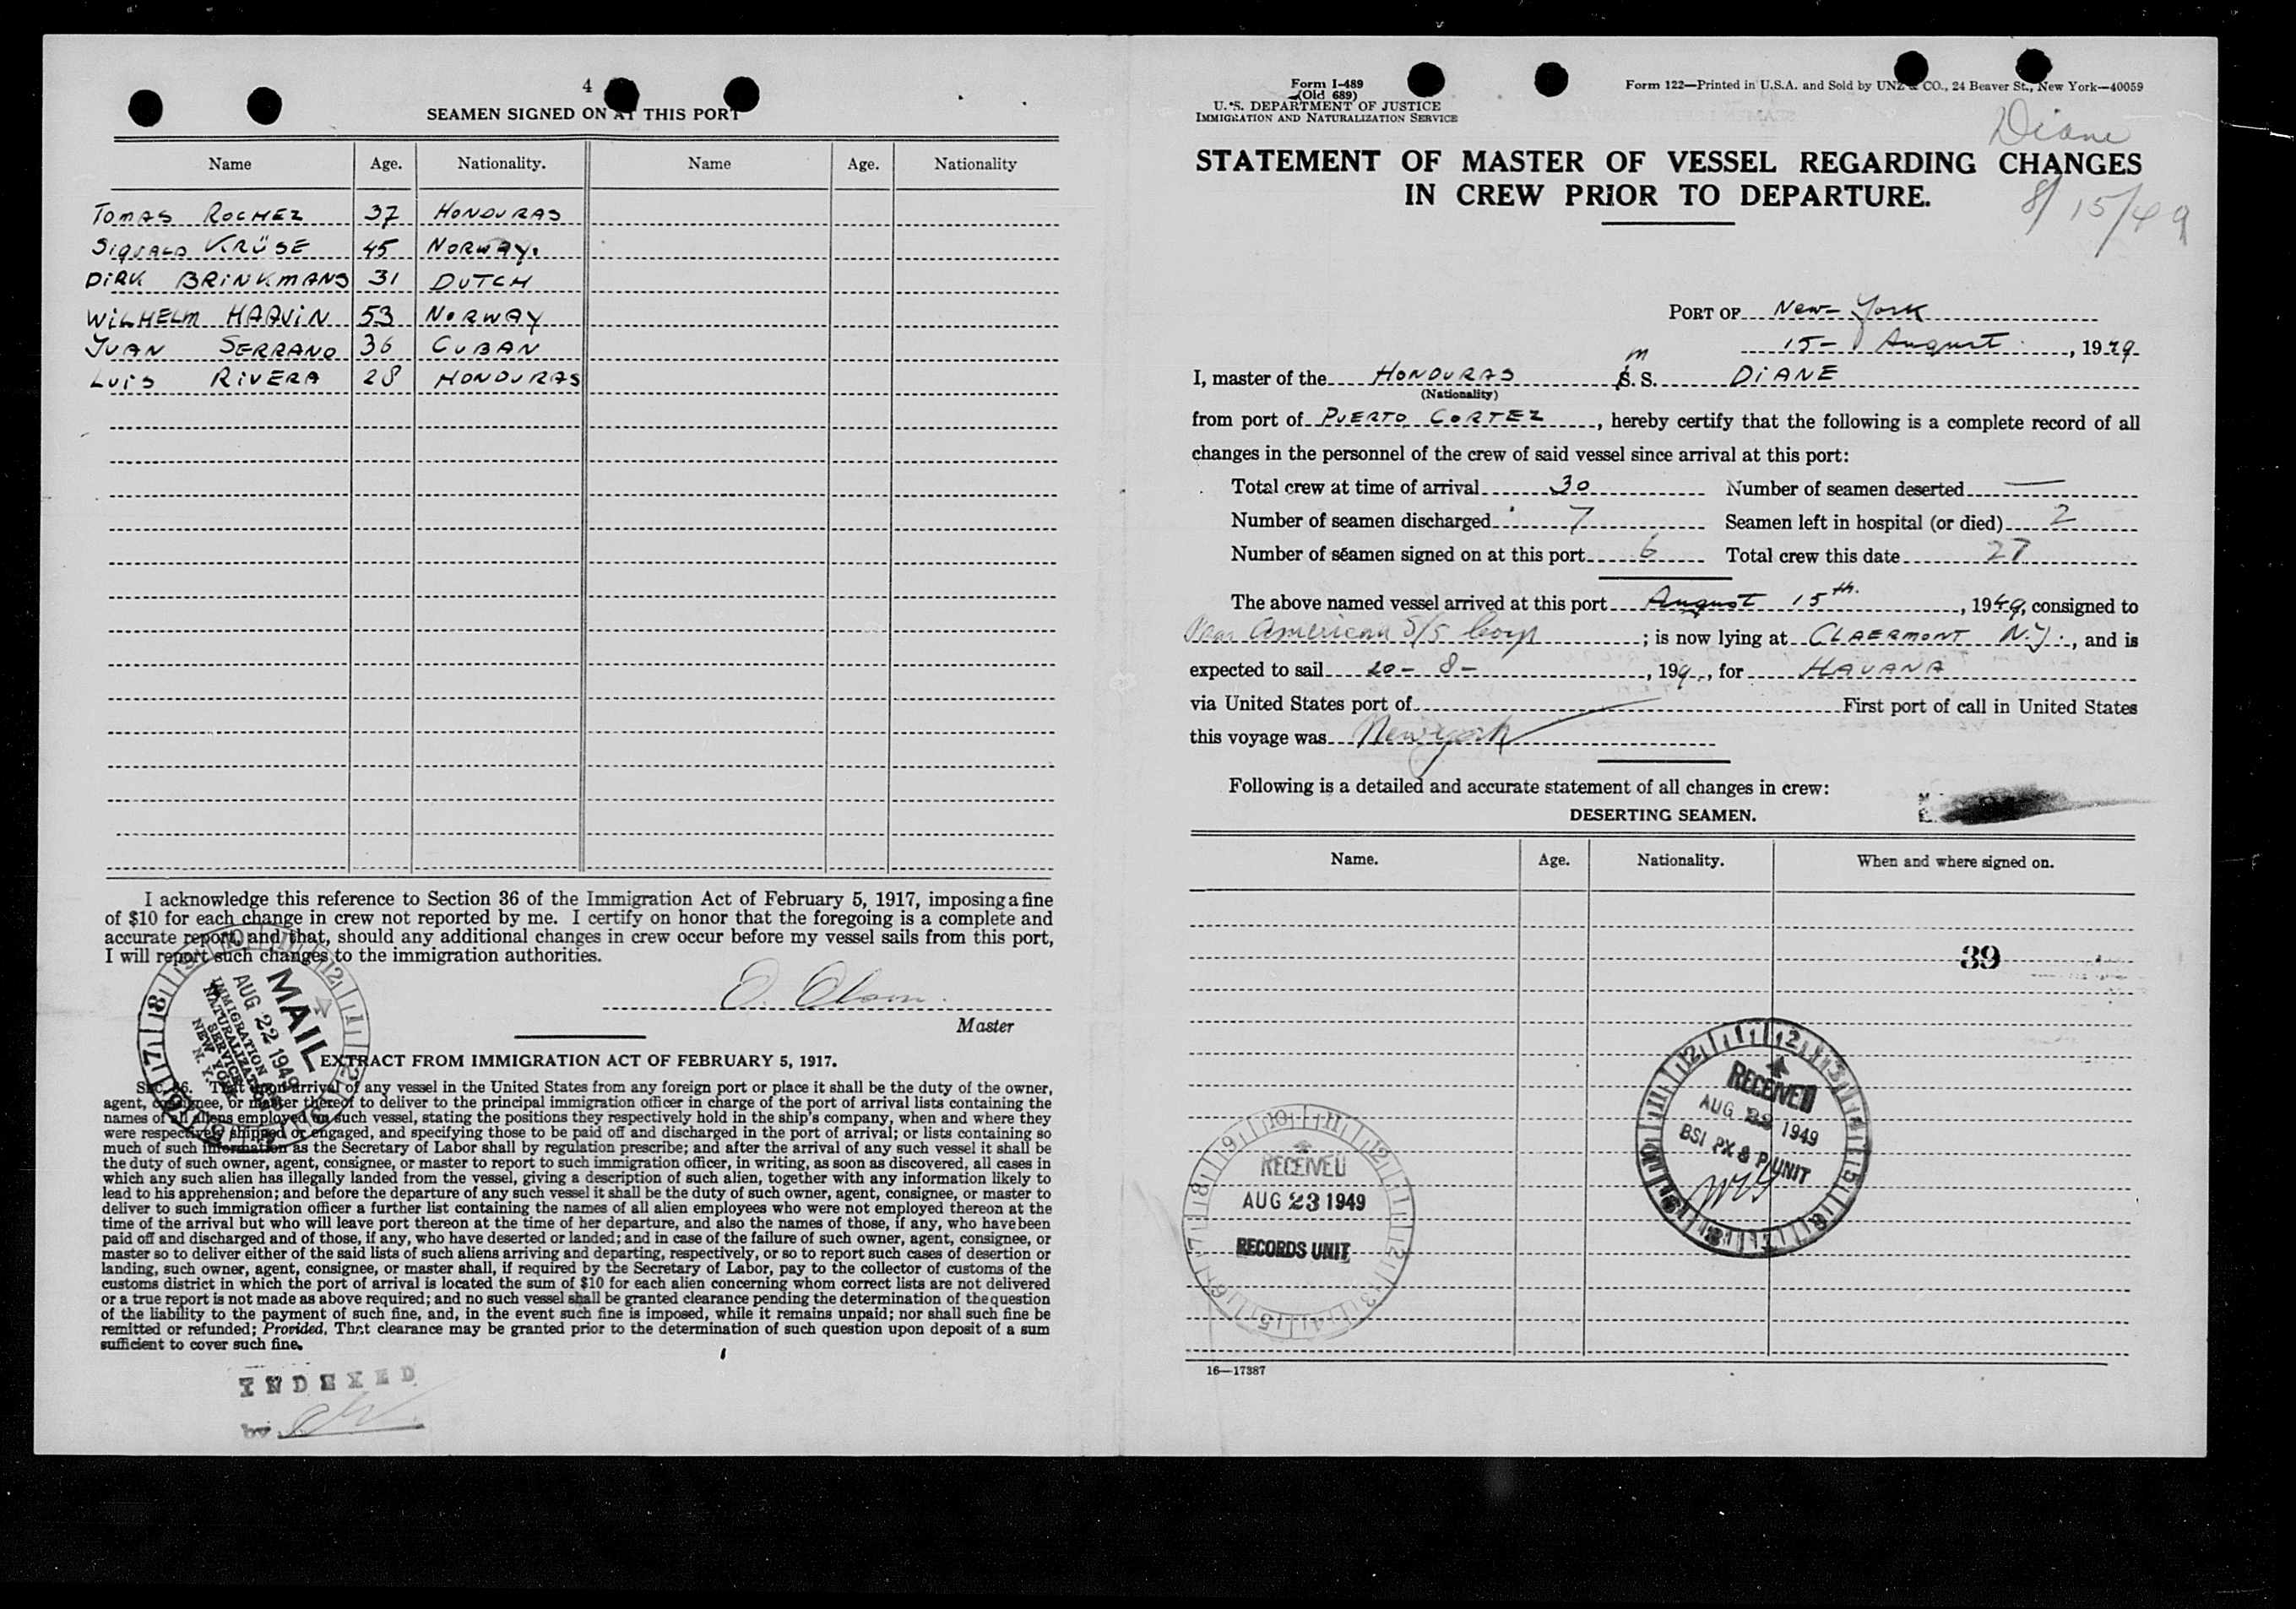 4
SEAMEN SIGNED ON AT THIS PORT
Name Age. Nationality. Name Age. Nationality
TOMAS ROCHEZ 37 HONDURAS
SIGVALD KRÜSE 45 NORWAY.
DIRK BRINKMANS 31 DUTCH
WILHELM HAAVIN 53 NORWAY
JUAN SERRANO 36 CUBAN
LUIS RIVERA 28 HONDURAS
I acknowledge this reference to Section 36 of the Immigration Act of February 5, 1917, imposing a fine
of $10 for each change in crew not reported by me. I certify on honor that the foregoing is a complete and
accurate report, and that, should any additional changes in crew occur before my vessel sails from this port,
I will report such changes to the immigration authorities.
O. Olsen.
Master
MAIL
AUG 22 1949
IMMIGRATION &
NATURALIZATION
SERVICE
NEW YORK
N. Y.
EXTRACT FROM IMMIGRATION ACT OF FEBRUARY 5, 1917.
Sec. 36. That upon arrival of any vessel in the United States from any foreign port or place it shall be the duty of the owner,
agent, consignee, or master thereof to deliver to the principal immigration officer in charge of the port of arrival lists containing the
names of all aliens employed on such vessel, stating the positions they respectively hold in the ship's company, when and where they
were respectively shipped or engaged, and specifying those to be paid off and discharged in the port of arrival; or lists containing so
much of such information as the Secretary of Labor shall by regulation prescribe; and after the arrival of any such vessel it shall be
the duty of such owner, agent, consignee, or master to report to such immigration officer, in writing, as soon as discovered, all cases in
which any such alien has illegally landed from the vessel, giving a description of such alien, together with any information likely to
lead to his apprehension; and before the departure of any such vessel it shall be the duty of such owner, agent, consignee, or master to
deliver to such immigration officer a further list containing the names of all alien employees who were not employed thereon at the
time of the arrival but who will leave port thereon at the time of her departure, and also the names of those, if any, who have been
paid off and discharged and of those, if any, who have deserted or landed; and in case of the failure of such owner, agent, consignee, or
master so to deliver either of the said lists of such aliens arriving and departing, respectively, or so to report such cases of desertion or
landing, such owner, agent, consignee, or master shall, if required by the Secretary of Labor, pay to the collector of customs of the
customs district in which the port of arrival is located the sum of $10 for each alien concerning whom correct lists are not delivered
or a true report is not made as above required; and no such vessel shall be granted clearance pending the determination of the question
of the liability to the payment of such fine, and, in the event such fine is imposed, while it remains unpaid; nor shall such fine be
remitted or refunded; Provided, That clearance may be granted prior to the determination of such question upon deposit of a sum
sufficient to cover such fine.
INDEXED
by
Form I-489
(Old 689)
U. S. DEPARTMENT OF JUSTICE
IMMIGRATION AND NATURALIZATION SERVICE
Form 122—Printed in U.S.A. and Sold by UNZ & CO., 24 Beaver St., New York—40059
Diane
STATEMENT OF MASTER OF VESSEL REGARDING CHANGES
IN CREW PRIOR TO DEPARTURE.
8/15/49
PORT OF New-York
15- August, 1949
I, master of the HONDURAS m S. S. DIANE
(Nationality)
from port of PUERTO CORTEZ, hereby certify that the following is a complete record of all
changes in the personnel of the crew of said vessel since arrival at this port:
Total crew at time of arrival 30 Number of seamen deserted —
Number of seamen discharged 7 Seamen left in hospital (or died) 2
Number of seamen signed on at this port 6 Total crew this date 27
The above named vessel arrived at this port August 15th. , 1949, consigned to
Pan American S/S Corp ; is now lying at CLAERMONT N.J., and is
expected to sail 20- 8- , 199, for HAVANA
via United States port of First port of call in United States
this voyage was New york
Following is a detailed and accurate statement of all changes in crew:
DESERTING SEAMEN.
Name. Age. Nationality. When and where signed on.
39
RECEIVED
AUG 1949
BSI PX & P UNIT
RECEIVED
AUG 23 1949
RECORDS UNIT
16—17387